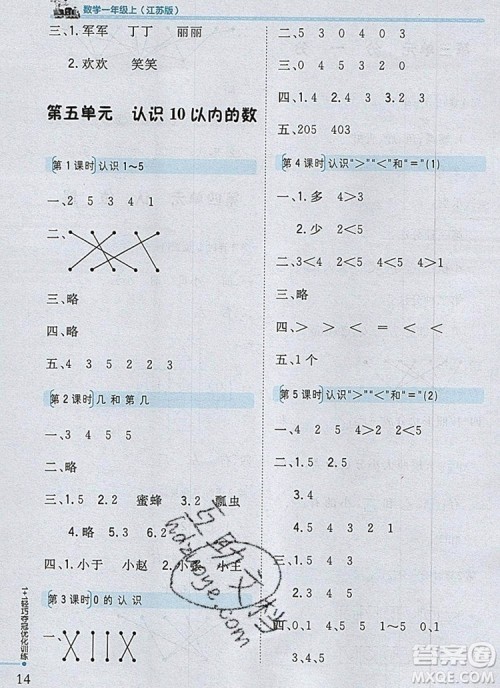 数学一年级上(江苏版)
三、1.军军 丁丁 丽丽
2.欢欢 笑笑
第五单元 认识10以内的数
第1课时 认识1~5
一、2 5 3 4 1
二、
三、略
四、略
五、4 3 5 2 2 3
第2课时 几和第几
一、3 4 5 5
二、略
三、1.5 2.2 蜜蜂 3.2 瓢虫
4.略 5.3 6.2
四、1.小于 小赵 2.小李 小王
第3课时 0的认识
一、
1+1轻巧夺冠优化训练
14
二、0 2 4 5
三、0 4 3 5 0
四、1.√ 2.× 3.√ 4.×
五、205 403
第4课时 认识“>”“<”和“=”(1)
一、1.多 4>3
2.少 2<5
二、3<4 2<5 4<5 4>1
三、略
四、> > = < <
五、1个
第5课时 认识“>”“<”和“=”(2)
一、4>3 2<5
二、1.3 2.4,5
3.0,4
三、5 0 4 3 2 1
四、1.3,4,5
2.4,5
3.0,1
五、2,0,1 0,1 2,0,1
互助文档
hdzdoye.com
MXQE.COM